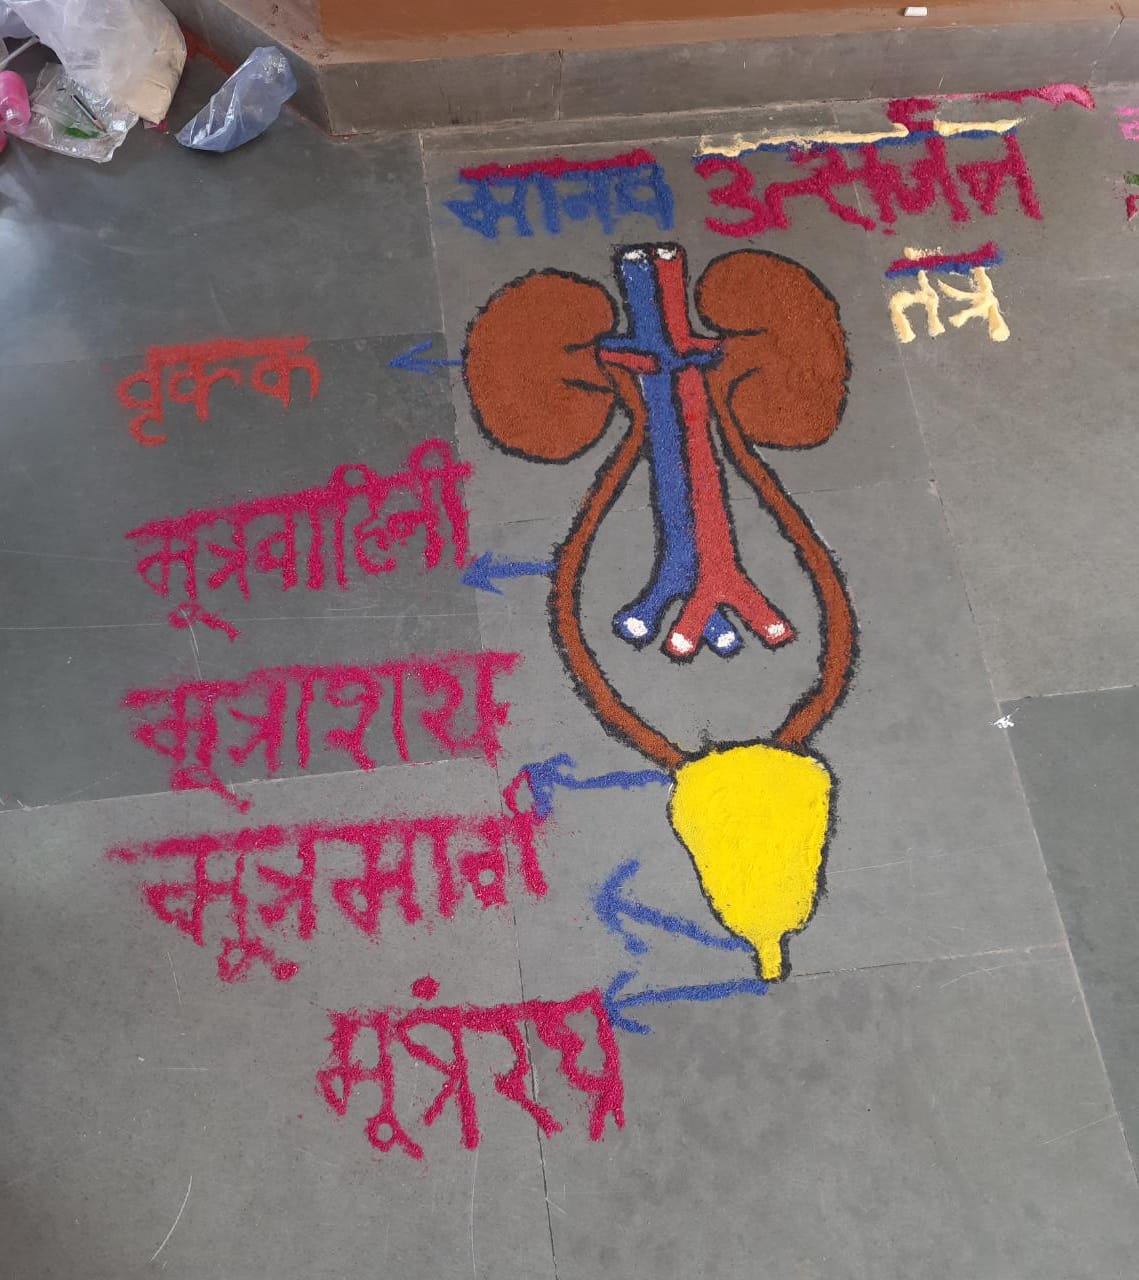 मानव उत्सर्जन
तंत्र
वृक्क
मूत्रवाहिनी
मूत्राशय
मूत्रमार्ग
मूत्रंरध्र